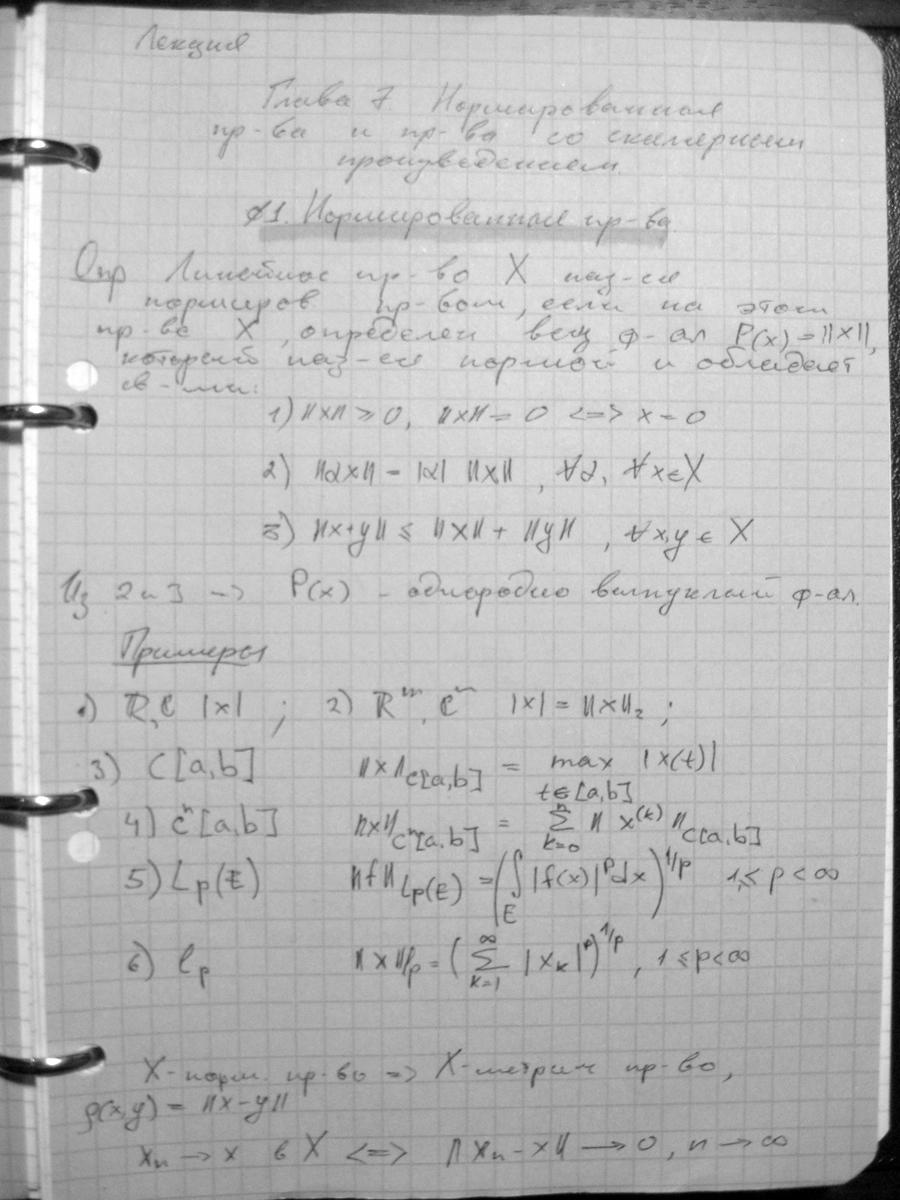 Лекция
Глава 7. Нормированная
пр-ва и пр-ва со скалярным
произведением.
§1. Нормированные пр-ва
Опр Линейное пр-во X наз-ся
нормиров пр-вом, если на этом
пр-ве X, определен вещ ф-ал P(x) = ||x||,
который наз-ся нормой и обладает
св-ми:
1) ||x|| ≥ 0, ||x|| = 0 <=> x = 0
2) ||αx|| = |α| ||x||, ∀α, ∀x ∈ X
3) ||x+y|| ≤ ||x|| + ||y||, ∀x,y ∈ X
Из 2 и 3 -> P(x) - однородно выпуклый ф-ал.
Примеры
1) ℝ, ℂ |x| ; 2) ℝᵐ, ℂⁿ |x| = ||x||₂ ;
3) C[a,b] ||x||_C[a,b] = max_{t∈[a,b]} |x(t)|
4) Cⁿ[a,b] ||x||_Cⁿ[a,b] = ∑_{k=0}^{n} ||x^(k)||_C[a,b]
5) L_p(E) ||f||_L_p(E) = (∫_E |f(x)|^p dx)^{1/p} 1 ≤ p < ∞
6) l_p ||x||_l_p = (∑_{k=1}^{∞} |x_k|^p)^{1/p}, 1 ≤ p < ∞
X - норм. пр-во => X - метрич пр-во,
ρ(x,y) = ||x-y||
x_n → x в X <=> ||x_n - x|| → 0, n → ∞